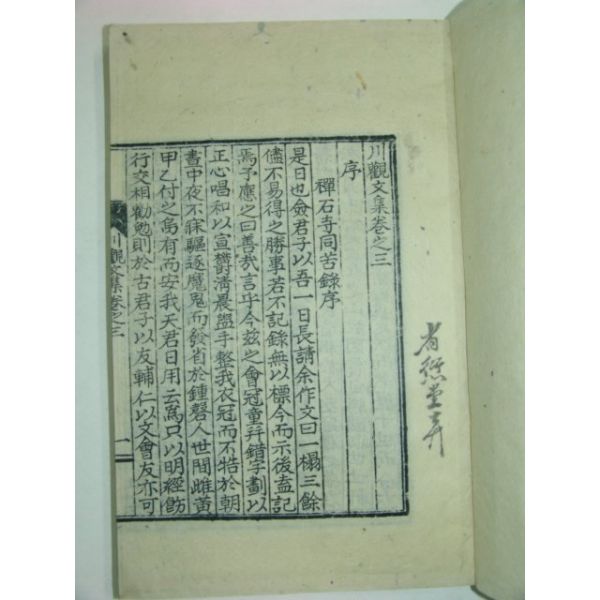 川觀文集卷之三
序
禪石寺同苦錄序
是日也僉君子以吾一日長請余作文曰一榻三餘
儘不易得之勝事若不記錄無以標今而示後盍記
焉予應之曰善哉言乎今玆之會冠童幷錯字劃以
正心唱和以宣欝淸晨盥手整我衣冠而不牿於朝
晝中夜不寐驅逐魔鬼而發省於鍾磬人世間雌黃
甲乙付之烏有而安我天君日用云爲只以明經飭
行交相勸勉則於古君子以友輔仁以文會友亦可
川觀文集卷之三
一